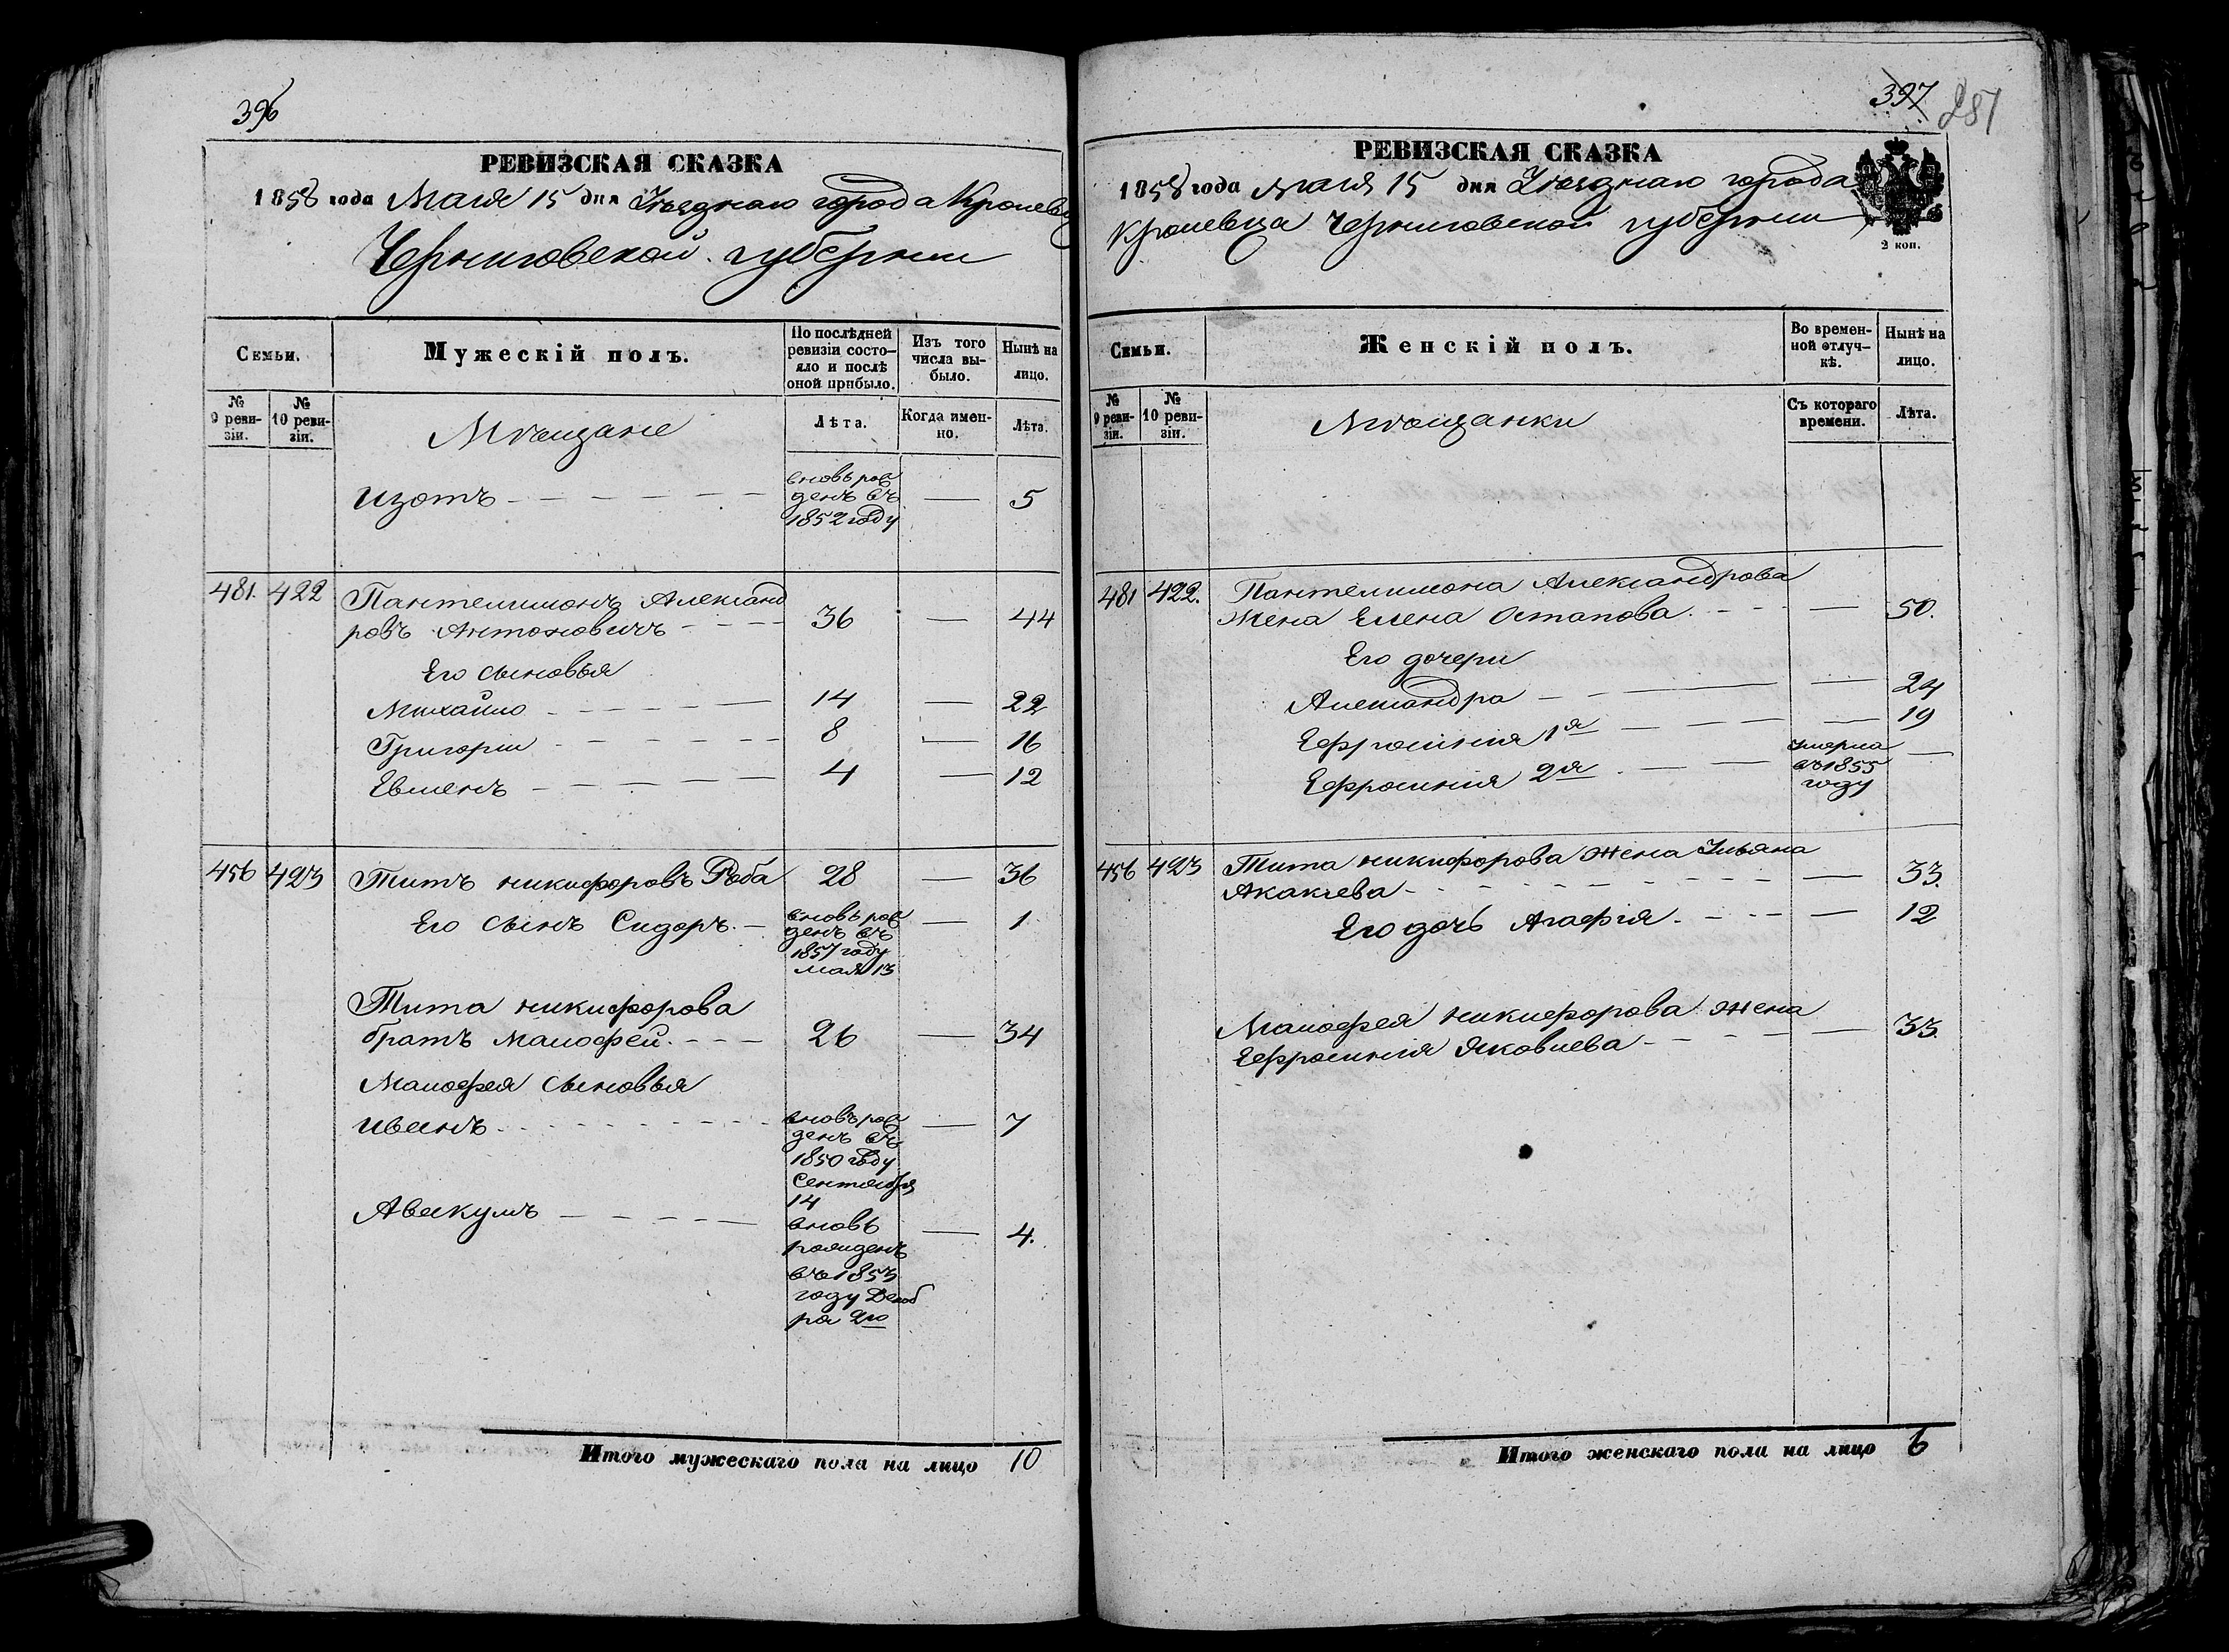 396
РЕВИЗСКАЯ СКАЗКА
1858 года Мая 15 дня Уѣзднаго города Кролевц
Черниговской губерніи
Семьи.
Мужескій полъ.
По послѣдней ревизіи состояло и послѣ оной прибыло.
Изъ того числа выбыло.
Нынѣ на лицо.
№ 9 ревизіи.
№ 10 ревизіи.
Мѣщане
Лѣта.
Когда именно.
Лѣта.
Изотъ - - - - - - вновь рожденъ въ 1852 году — 5
481. 422 Пантелимонъ Александ
ровъ Антоновичъ - - - 36 — 44
Его сыновья
Михайло - - - - - 14 — 22
Григорій - - - - - 8 — 16
Евменъ - - - - - 4 — 12
456 423 Титъ Никифоровъ Роба 28 — 36
Его сынъ Сидоръ. - вновь рожденъ въ 1857 году мая 13 — 1
Тита Никифорова
братъ Малофей. - - - 26 — 34
Малофея сыновья
Иванъ - - - - - - вновь рожденъ въ 1850 году Сентября 14 — 7
Авакумъ - - - - - вновь рожденъ въ 1853 году Декабря 2го — 4.
Итого мужескаго пола на лицо 10
397
281
РЕВИЗСКАЯ СКАЗКА
1858 года мая 15 дня Уѣзднаго города
Кролевца Черниговской губерніи
2 коп.
Семьи.
Женскій полъ.
Во временной отлучкѣ.
Нынѣ на лицо.
№ 9 ревизіи.
№ 10 ревизіи.
Мѣщанки
Съ котораго времени.
Лѣта.
481 422. Пантелимона Александрова
жена Елена Остапова. - - - — 50.
Его дочери
Александра - - - — 24
Ефросинія 1я - - - — 19
Ефросинія 2я - - - умерла въ 1855 году —
456 423 Тита Никифорова жена Ульяна
Акакіева - - - - - — 33.
Его дочь Агафія. - - - — 12
Малофея Никифорова жена
Ефросинія Яковлева - - - — 33.
Итого женскаго пола на лицо 6